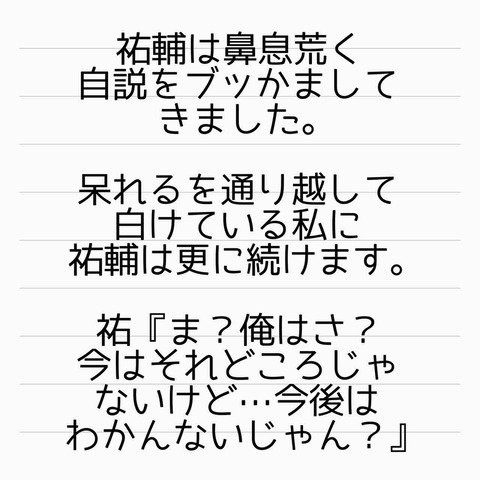 祐輔は鼻息荒く
自説をブッかまして
きました。
呆れるを通り越して
白けている私に
祐輔は更に続けます。
祐『ま？俺はさ？
今はそれどころじゃ
ないけど…今後は
わかんないじゃん？』